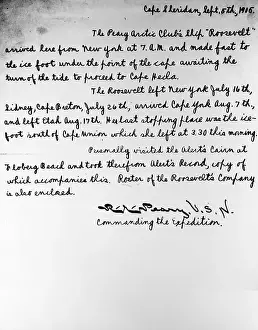 Cape Sheridan, Sept, 5th, 1905.
The Peary Arctic Club's Ship "Roosevelt"
arrived here from New York at 7 A.M. and made fast to
the ice foot under the point of the cape awaiting the
turn of the tide to proceed to Cape Hecla.
The Roosevelt left New York July 16th,
Sidney, Cape Breton, July 26th, arrived Cape York Aug. 7th,
and left Etah Aug. 17th. Her last stopping place was the ice-
foot south of Cape Union which she left at 3.30 this morning.
Personally visited the Alert's Cairn at
Floberg Beach and took therefrom Alert's Record, copy of
which accompanies this. Roster of the Roosevelt's Company
is also enclosed.
R.E. Peary U.S.N.
Commanding the Expedition.